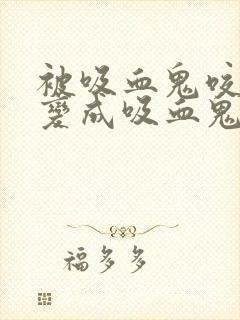 被吸血鬼咬
變成吸血鬼
福多多